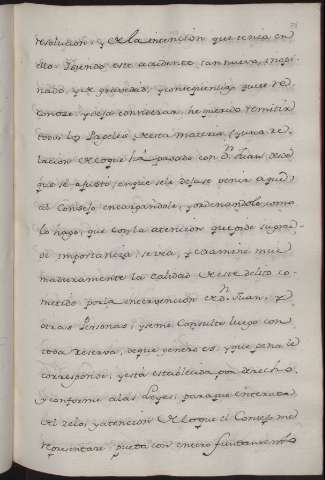 resolucion; y de la intencion que tenia en
ello. Y siendo este accidente tan nuevo, inopi-
nado, y de gravedad, y consequencias que se de-
y deja considerar, he querido remitir
todos los Papeles desta materia (y una re-
lacion de lo que há pasado con Dn. Juan desde
que se ajustó, en que se le dejase venir aqui)
al Consejo encargandole, y ordenandole como
lo hago, que con la atencion que pide su gra-
de importancia, se vea, y examine mui
maduramente la calidad deste delito co-
metido por la intervencion de Dn. Juan, y
otras Personas; y se me Consulte luego con
toda reserva, de que genero es, y que pena le
corresponde, y está establecida por derecho,
y conforme a las Leyes; para que enterada
del zelo, y atencion de lo que el Consejo me
representare pueda con entero fundamento